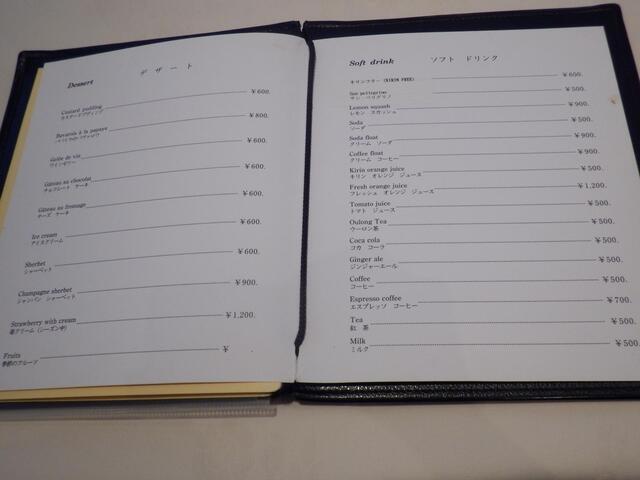 Dessert デザート
Custard pudding ¥600.
カスタードプディング
Bavarois à la papaye ¥800.
パパイヤのババロワ
Gelée de vin ¥600.
ワインゼリー
Gâteau au chocolat ¥600.
チョコレート ケーキ
Gâteau au fromage ¥600.
チーズ ケーキ
Ice cream ¥600.
アイスクリーム
Sherbet ¥600.
シャーベット
Champagne sherbet ¥900.
シャンパン シャーベット
Strawberry with cream ¥1,200.
苺クリーム (シーズン中)
Fruits ¥
季節のフルーツ
Soft drink ソフト ドリンク
キリンフリー (KIRIN FREE) ¥600.
San pellegrino ¥500.
サン ペリグリノ
Lemon squash ¥900.
レモン スカッシュ
Soda ¥500.
ソーダ
Soda float ¥900.
クリーム ソーダ
Coffee float ¥900.
クリーム コーヒー
Kirin orange juice ¥500.
キリン オレンジ ジュース
Fresh orange juice ¥1,200.
フレッシュ オレンジ ジュース
Tomato juice ¥500.
トマト ジュース
Oulong Tea ¥500.
ウーロン茶
Coca cola ¥500.
コカ コーラ
Ginger ale ¥500.
ジンジャーエール
Coffee ¥500.
コーヒー
Espresso coffee ¥700.
エスプレッソ コーヒー
Tea ¥500.
紅 茶
Milk ¥500.
ミルク